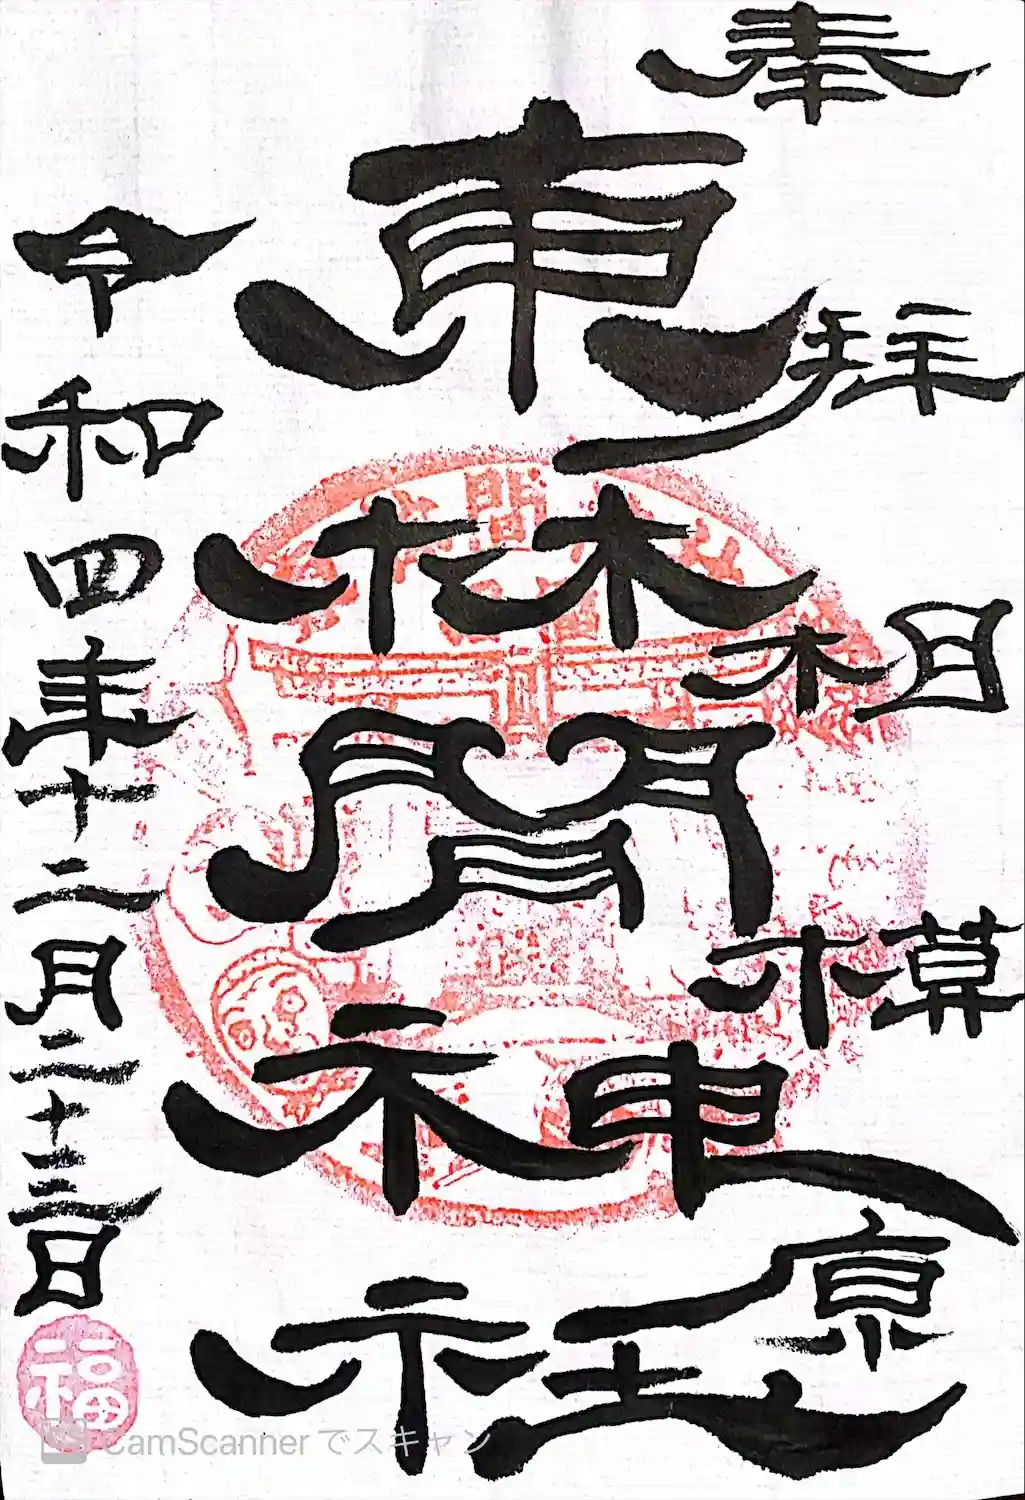 奉拝 相模原
東林間神社
令和四年十二月二十三日
福
CamScanner でスキャン